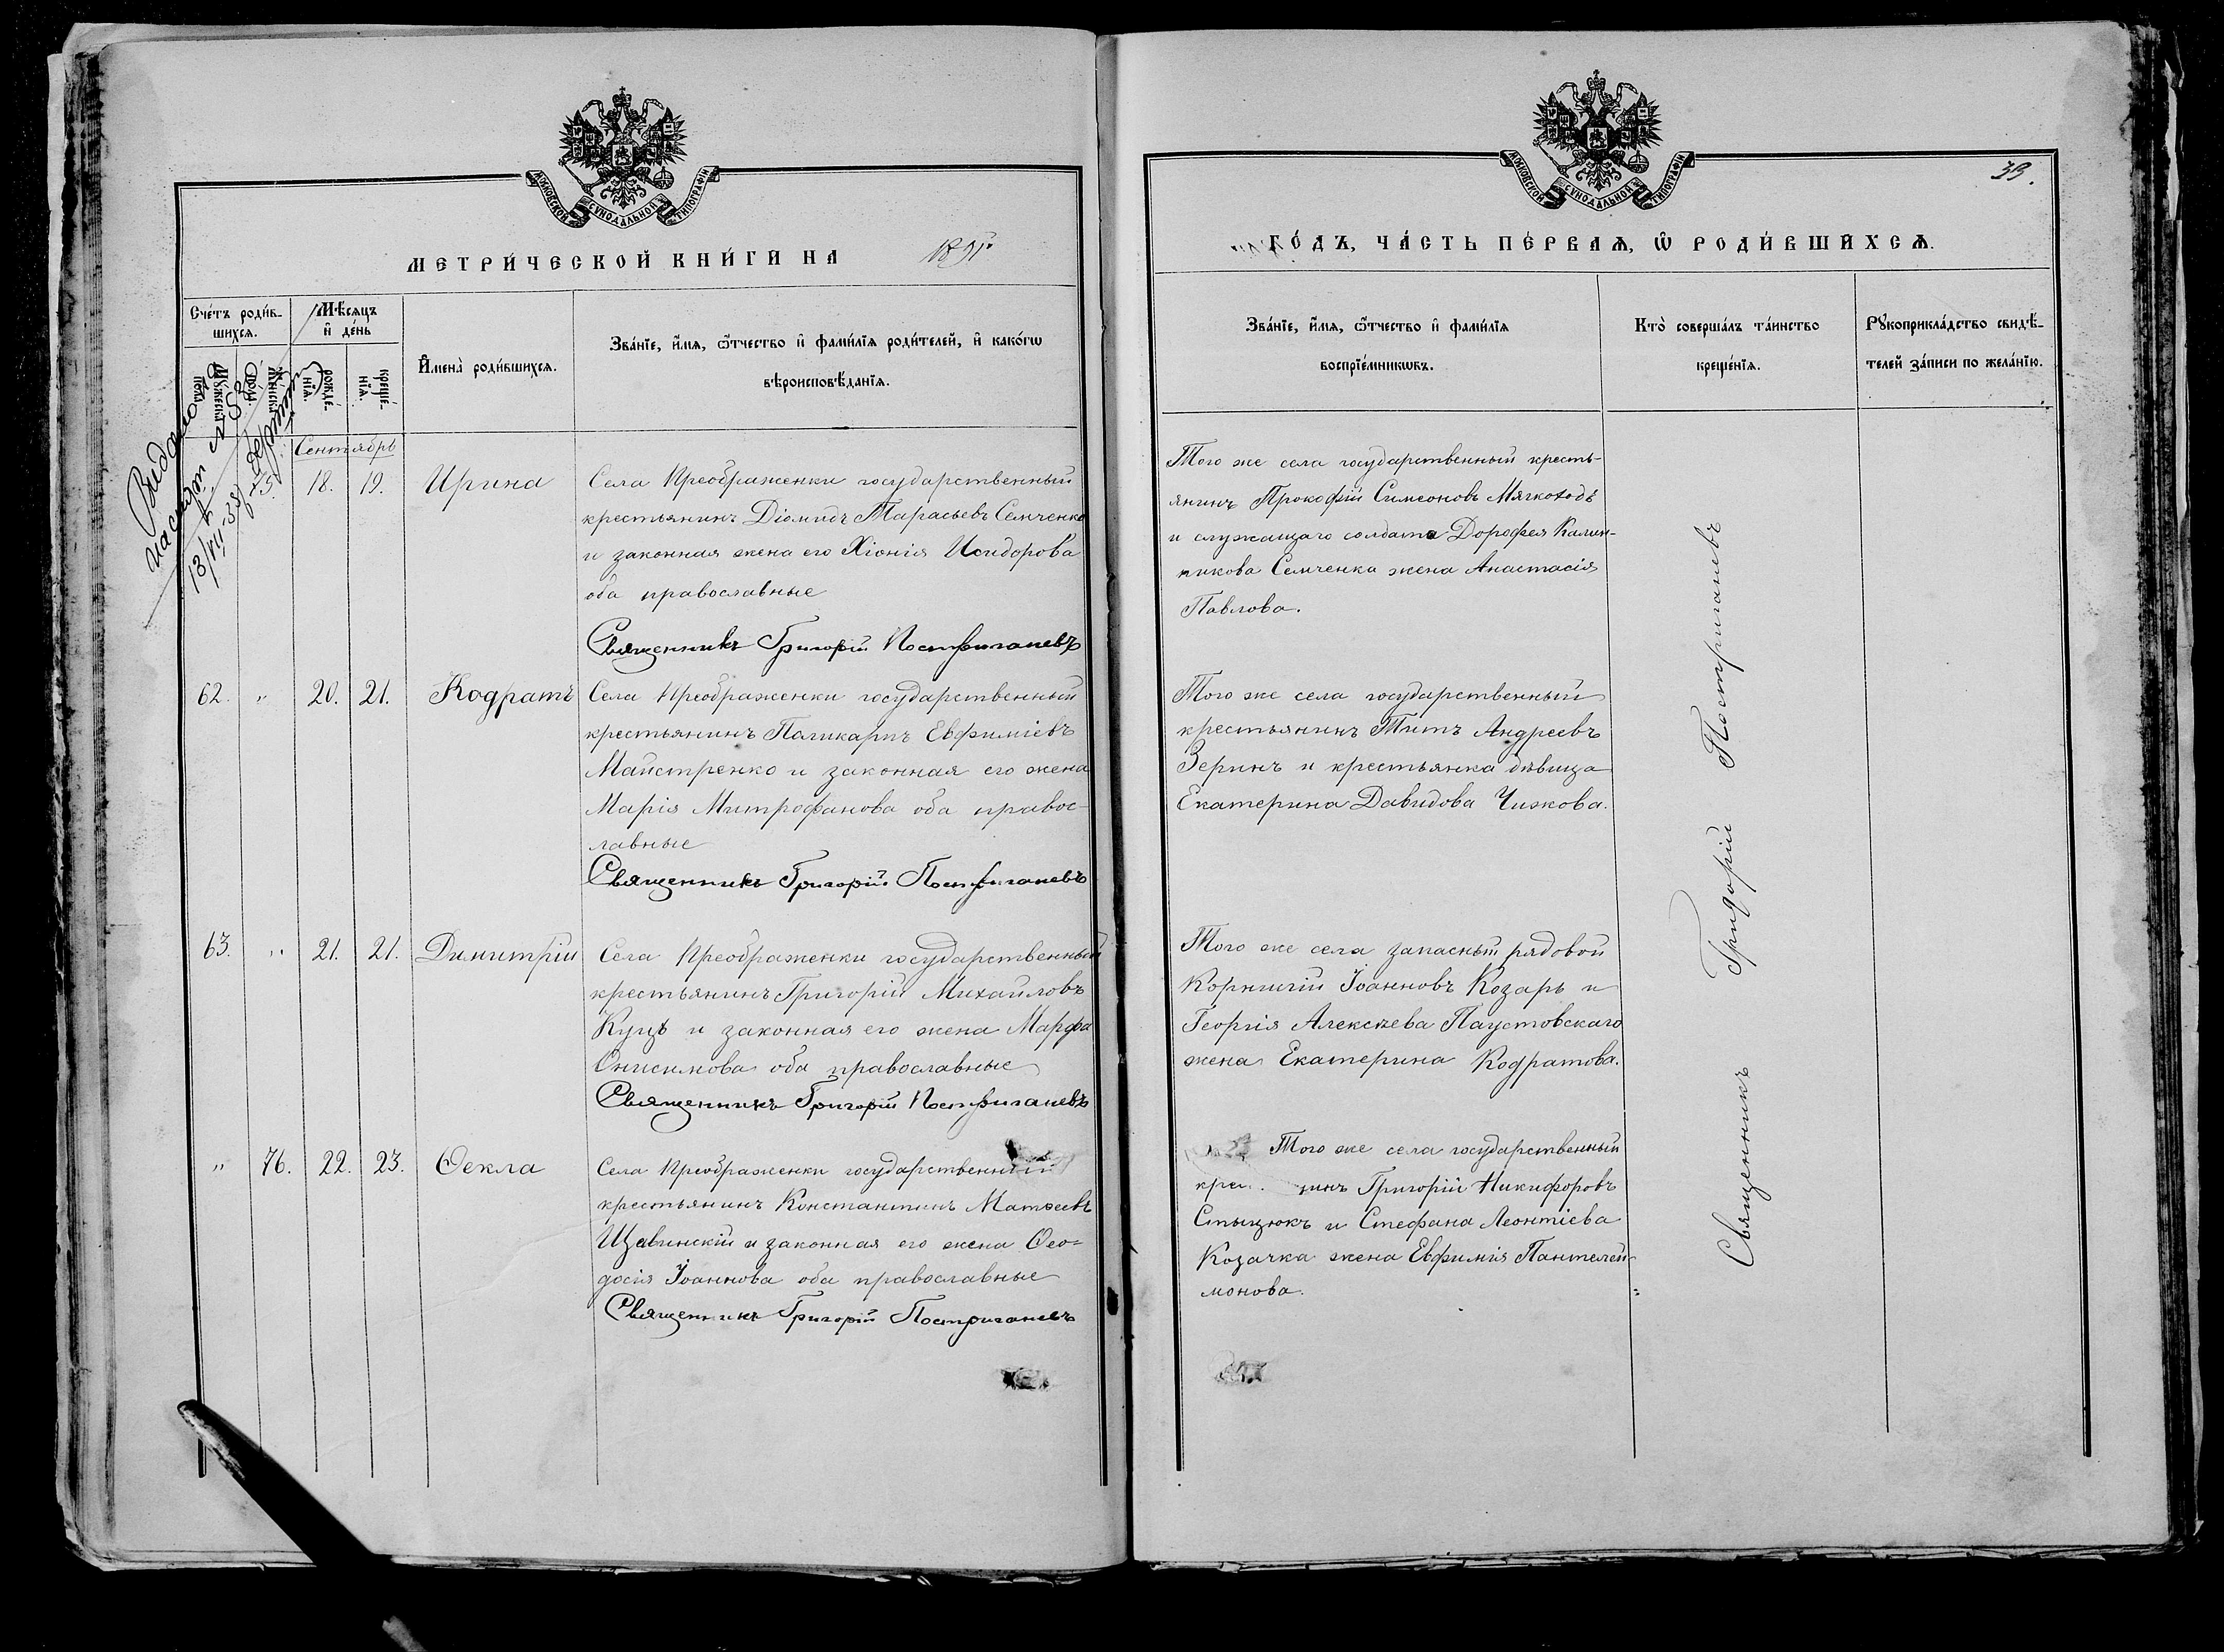 МОСКОВСКОЙ СѴНОДАЛЬНОЙ ТИПОГРАФІИ
МЕТРИ́ЧЕСКОЙ КНИ́ГИ НА 1891
Сче́тъ роди́в-
шихся.
Мѣ́сяцъ
и҆ де́нь
Мꙋ́жеска
пола.
Же́нска
пола.
рожде́-
нїѧ.
креще́-
нїѧ.
И҆мена̀ роди́вшихся.
Зва́нїе, и҆́мѧ, ѻ҆́тчество и҆ фами́лїѧ роди́телей, и҆ како́гѡ
вѣроисповѣ́данїѧ.
Видано
паспорт
Сентябрь
75. 18. 19. Ирина
Села Преображенки государственный
крестьянинъ Діомидъ Тарасьевъ Семченко
и законная жена его Хіонія Исидорова
оба православные
Священникъ Григорій Постригачевъ
62. " 20. 21. Кодратъ
Села Преображенки государственный
крестьянинъ Поликарпъ Евфиміевъ
Майстренко и законная его жена
Марія Митрофанова оба правос-
лавные
Священникъ Григорій Постригачевъ
63. " 21. 21. Димитрій
Села Преображенки государственный
крестьянинъ Григорій Михайловъ
Куцъ и законная его жена Марфа
Онисимова оба православные
Священникъ Григорій Постригачевъ
" 76. 22. 23. Ѳекла
Села Преображенки государственный
крестьянинъ Константинъ Матѳеевъ
Щавинскій и законная его жена Ѳео=
досія Іоаннова оба православные
Священникъ Григорій Постригачевъ
МОСКОВСКОЙ СѴНОДАЛЬНОЙ ТИПОГРАФІИ
39.
ГО́ДЪ, ЧА́СТЬ ПЕ́РВАѦ, Ѡ҆ РОДИ́ВШИХСѦ.
Зва́нїе, и҆́мѧ, ѻ҆́тчество и҆ фами́лїѧ
воспрїе́мникѡвъ.
Кто̀ соверша́лъ та́инство
креще́нїѧ.
Рꙋкоприкла́дство свидѣ́-
телей за́писи по жела́нїю.
Того же села государственный кресть-
янинъ Прокофій Симеоновъ Мягкоходъ
и служащаго солдата Дорофея Калин-
никова Семченка жена Анастасія
Павлова.
Того же села государственный
крестьянинъ Титъ Андреевъ
Зеринъ и крестьянка дѣвица
Екатерина Давидова Чижкова.
Того же села запасный рядовой
Корнилій Іоанновъ Козарь и
Георгія Алексѣева Паустовскаго
жена Екатерина Кодратова.
Того же села государственный
Григорій Никифоровъ
Стыцюкъ и Стефана Леонтіева
Козачка жена Евфимія Пантелей-
монова.
Священникъ Григорій Постригачевъ